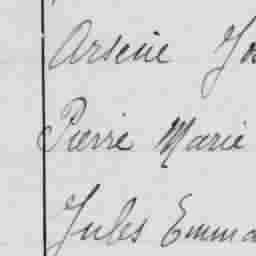 Arsène Jos
Pierre Marie
Jules Emma